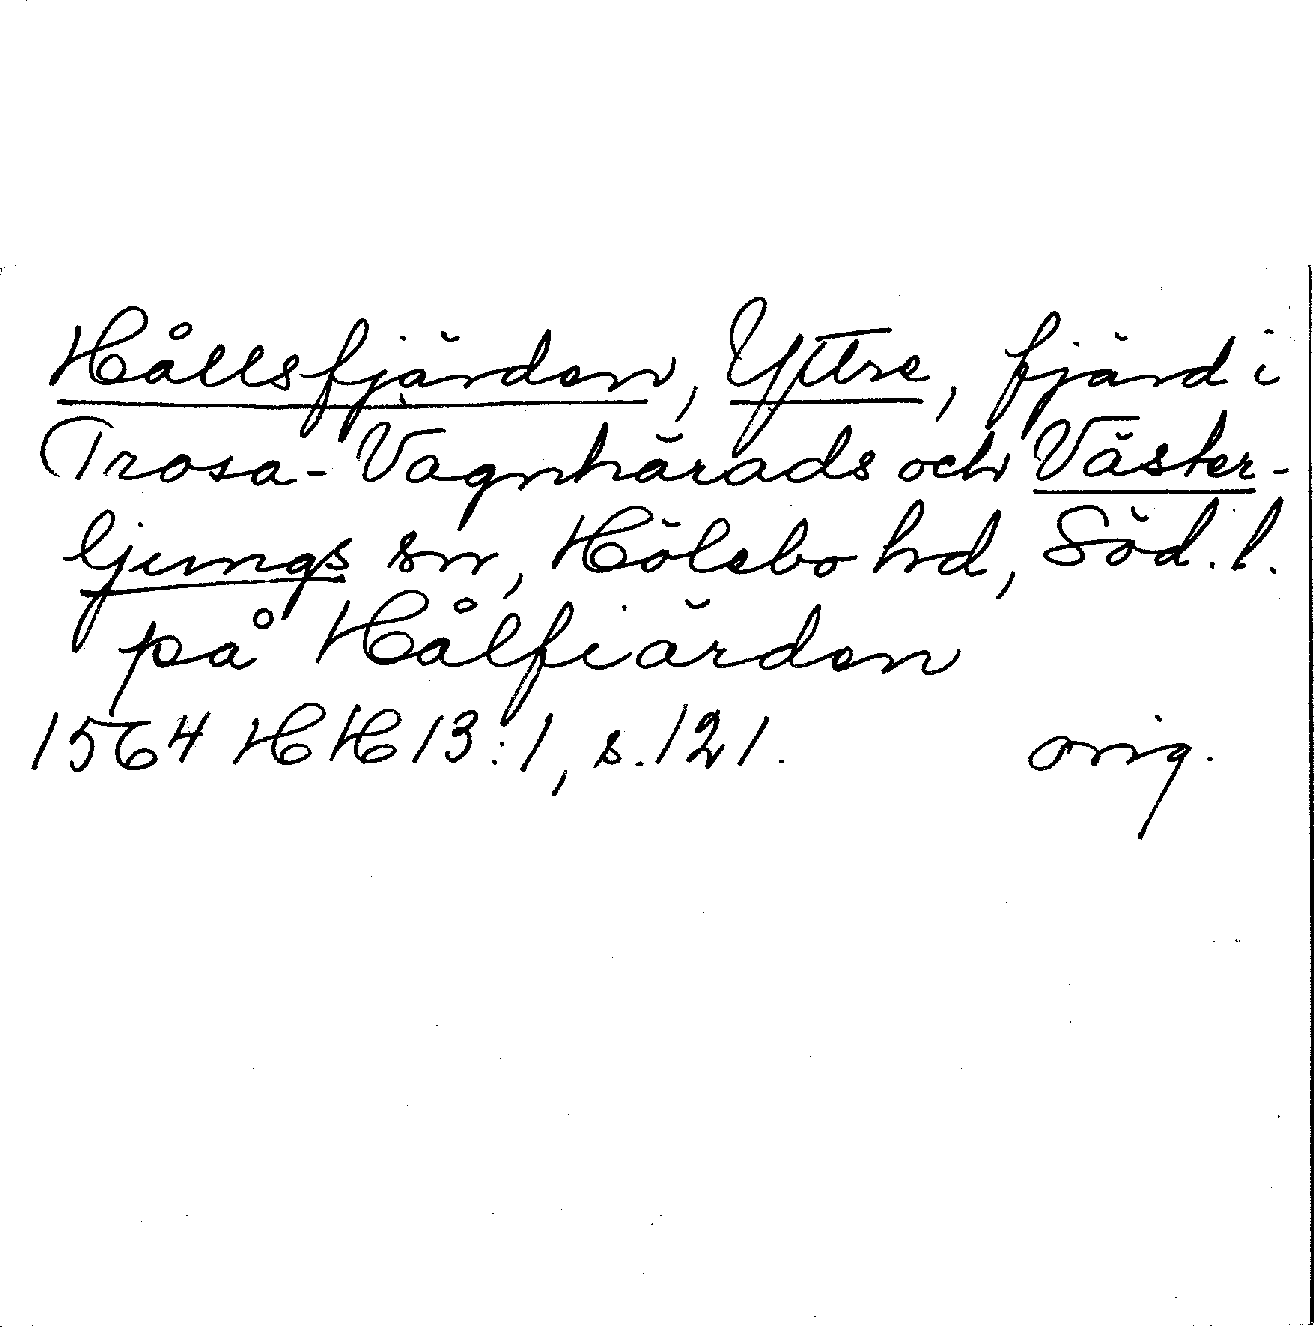 Hållsfjärden, Yttre, fjärd i
Trosa-Vagnhärads och Väster-
ljungs snr, Hölebo hd, Söd. l.
på Hålfiärden
1564 HH 13:1, s. 121. orig.